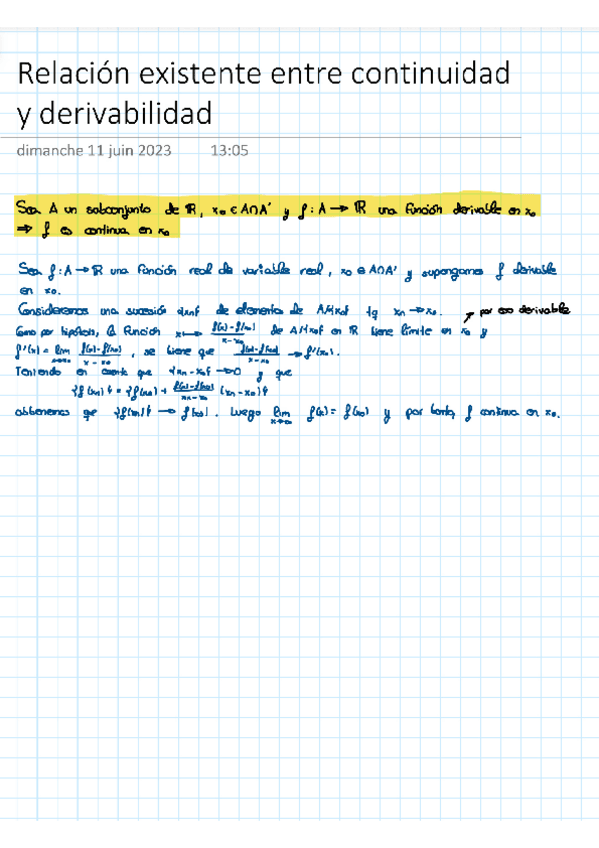 Relación existente entre continuidad
y derivabilidad
dimanche 11 juin 2023 13:05
Sea A un subconjunto de ℝ, x₀ ∈ A∩A' y f: A → ℝ una función derivable en x₀
⇒ f es continua en x₀
Sea f: A → ℝ una función real de variable real, x₀ ∈ A∩A' y supongamos f derivable
en x₀.
Consideremos una sucesión {xn} de elementos de A\{x₀} tq xn → x₀. ↗ por eso derivable
Como por hipótesis, la función x ↦ (f(x)-f(x₀))/(x-x₀) de A\{x₀} en ℝ tiene límite en x₀ y
f'(x) = lim (f(x)-f(x₀))/(x-x₀), se tiene que (f(x)-f(x₀))/(x-x₀) → f'(x₀).
Teniendo en cuenta que {xn-x₀} → 0 y que
{f(xn)} = {f(x₀) + (f(xn)-f(x₀))/(xn-x₀) (xn-x₀)}
obtenemos que {f(xn)} → f(x₀). Luego lim x→x₀ f(x) = f(x₀) y por tanto, f continua en x₀.